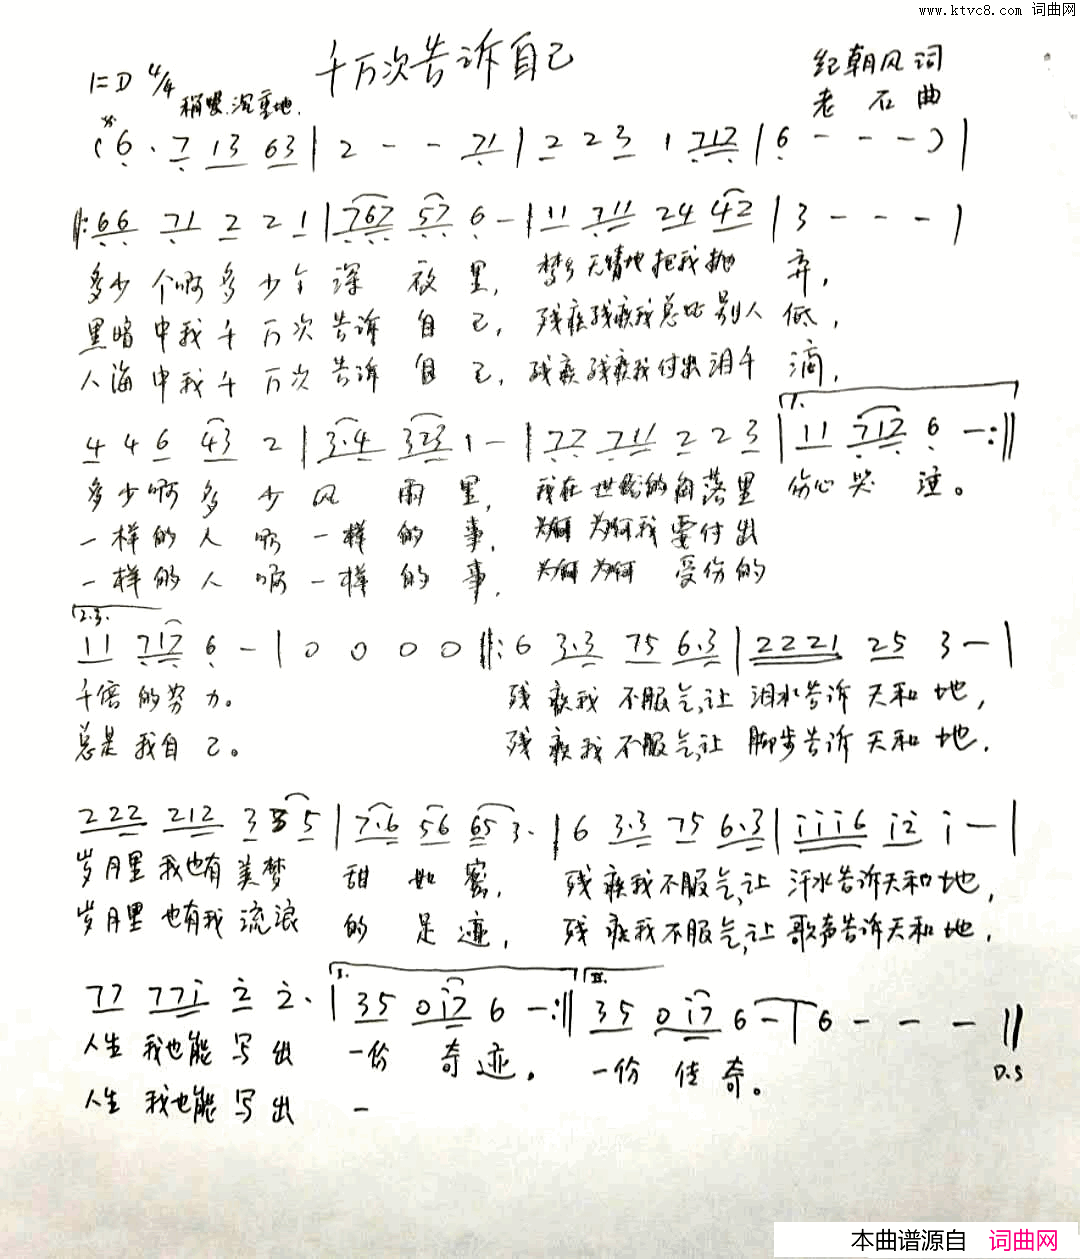 www.ktvc8.com 词曲网
千万次告诉自己
1=D 4/4
稍慢.沉重地.
纪朝风词
老石曲
(6· 7 13 63 | 2 - - 71 | 2 2 3 1 712 | 6 - - - ) |
‖: 66 71 2 2 1 | 767 57 6 - | 11 711 24 42 | 3 - - - |
多少个啊多少个深夜里, 梦乡无情地把我抛弃,
黑暗中我千万次告诉自己, 残疾残疾我总比别人低,
人海中我千万次告诉自己, 残疾残疾我付出泪千滴,
4 4 6 43 2 | 3·4 323 1 - | 77 711 2 2 3 | 1. 11 717 6 - :‖
多少啊多少风雨里, 我在世俗的角落里伤心哭泣。
一样的人啊一样的事, 为何为何我要付出
一样的人啊一样的事, 为何为何受伤的
2.3. 11 717 6 - | 0 0 0 0 ‖: 6 3·3 75 6·3 | 2221 25 3 - |
千倍的努力。 残疾我不服气,让泪水告诉天和地,
总是我自己。 残疾我不服气,让脚步告诉天和地,
222 212 3 5 5 | 7·6 56 65 3· | 6 3·3 75 6·3 | iii6 i2 i - |
岁月里我也有美梦甜如蜜, 残疾我不服气,让汗水告诉天和地,
岁月里也有我流浪的足迹, 残疾我不服气,让歌声告诉天和地,
77 77i 2 2· | I. 35 0i7 6 - :‖ II. 35 0i7 6 - | 6 - - - ‖
D.S
人生我也能写出一份奇迹。 一份传奇。
人生我也能写出一
本曲谱源自 词曲网